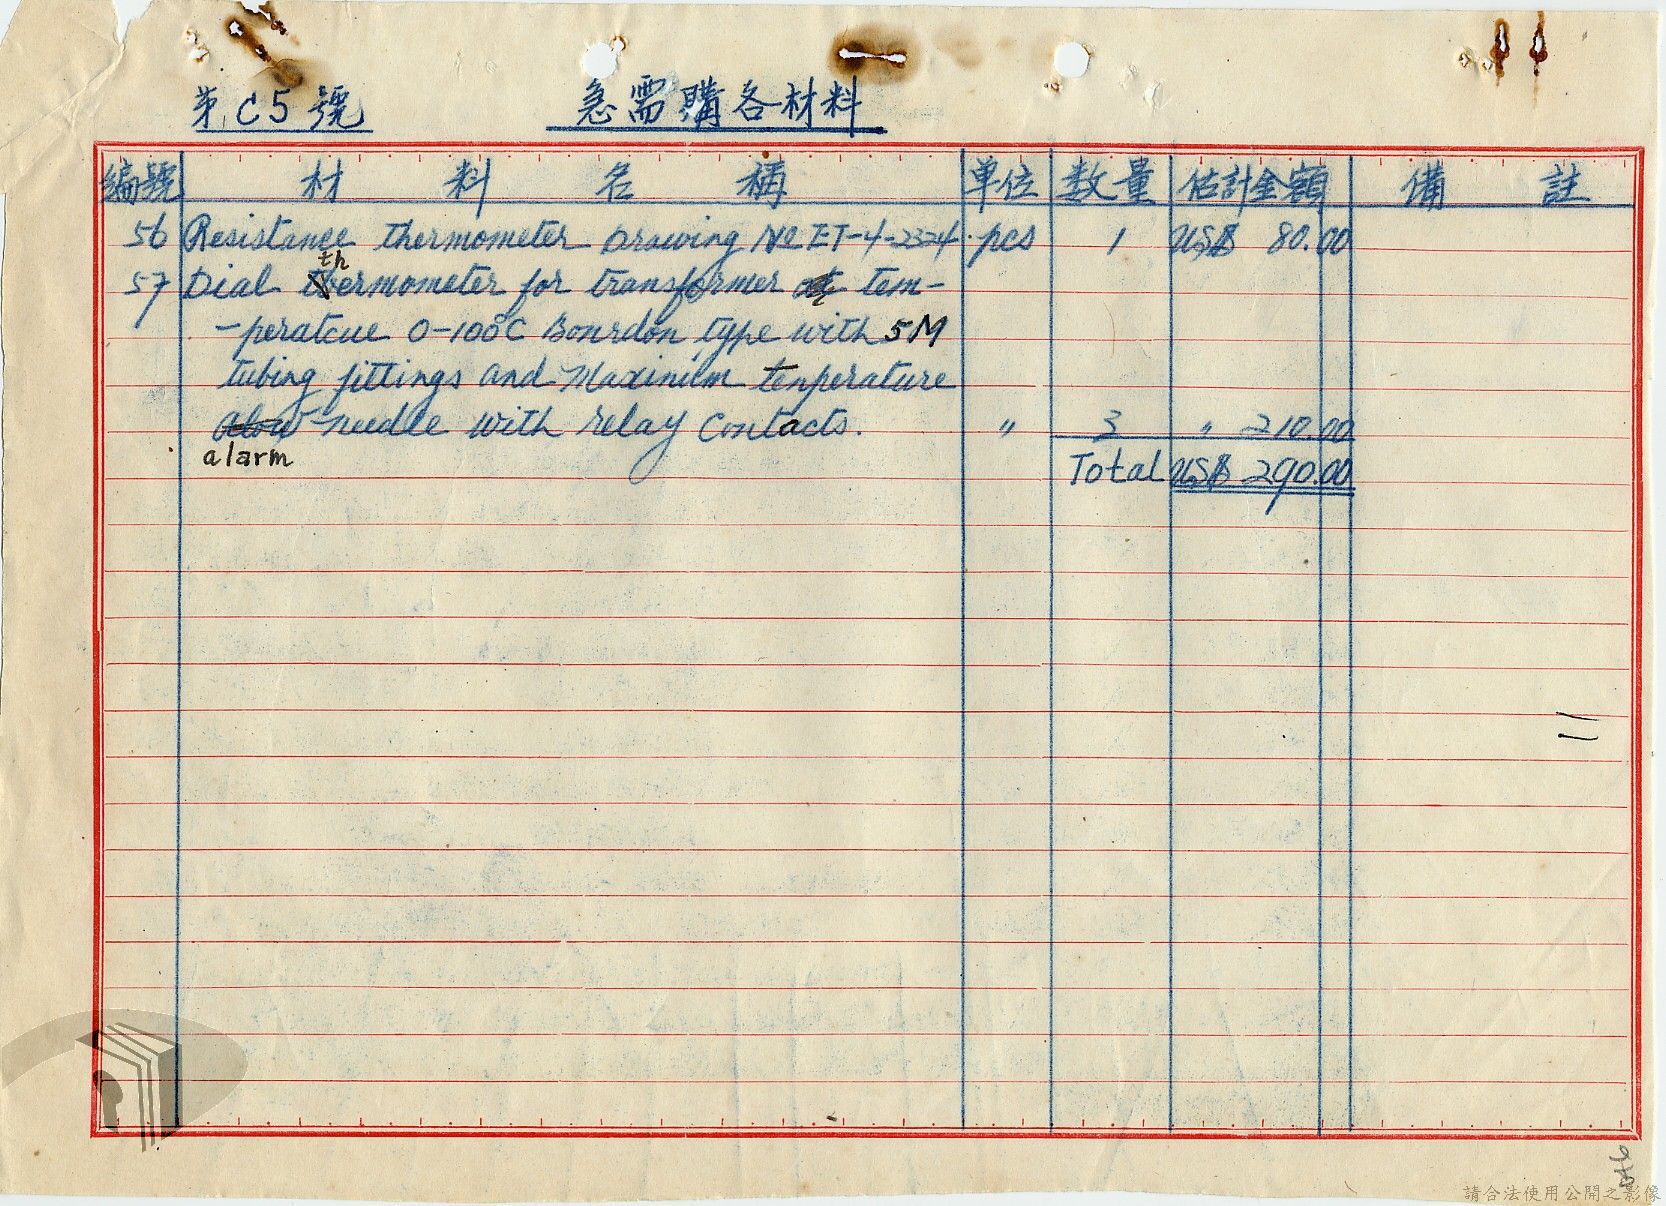 第C5號 急需購各材料
編號 材料名稱 单位 数量 估計金額 備註
56 Resistance thermometer Drawing No ET-4-2324 pcs 1 US$ 80.00
th
57 Dial thermometer for transformer tem-
-perature 0-100°C Bourdon type with 5M
tubing fittings and Maximum temperature
needle with relay Contacts. " 3 " 210.00
alarm
Total US$ 290.00
請合法使用公開之影像